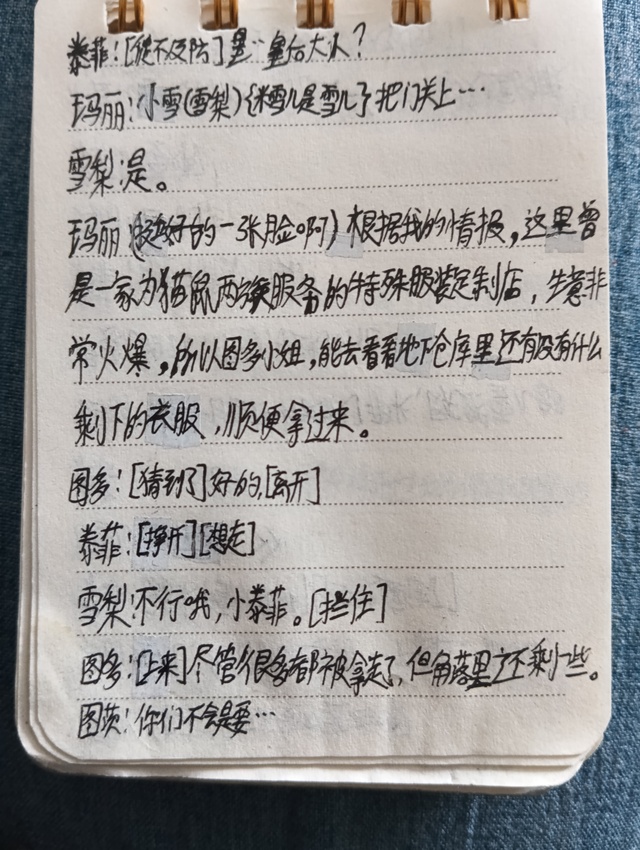 泰菲：[猝不及防]是…皇后大人？
玛丽：小雪(雪梨)(米雪儿是雪儿)把门关上…
雪梨：是。
玛丽(挺好的一张脸啊)根据我的情报，这里曾
是一家为猫鼠两族服务的特殊服装定制店，生意非
常火爆，所以图多小姐，能去看看地下仓库里还有没有什么
剩下的衣服，顺便拿过来。
图多：[猜到了]好的，[离开]
泰菲：[挣开][想走]
雪梨：不行哦，小泰菲。[拦住]
图多：[上来]尽管很多都被拿走了，但角落里还剩一些。
图茨：你们不会是要…